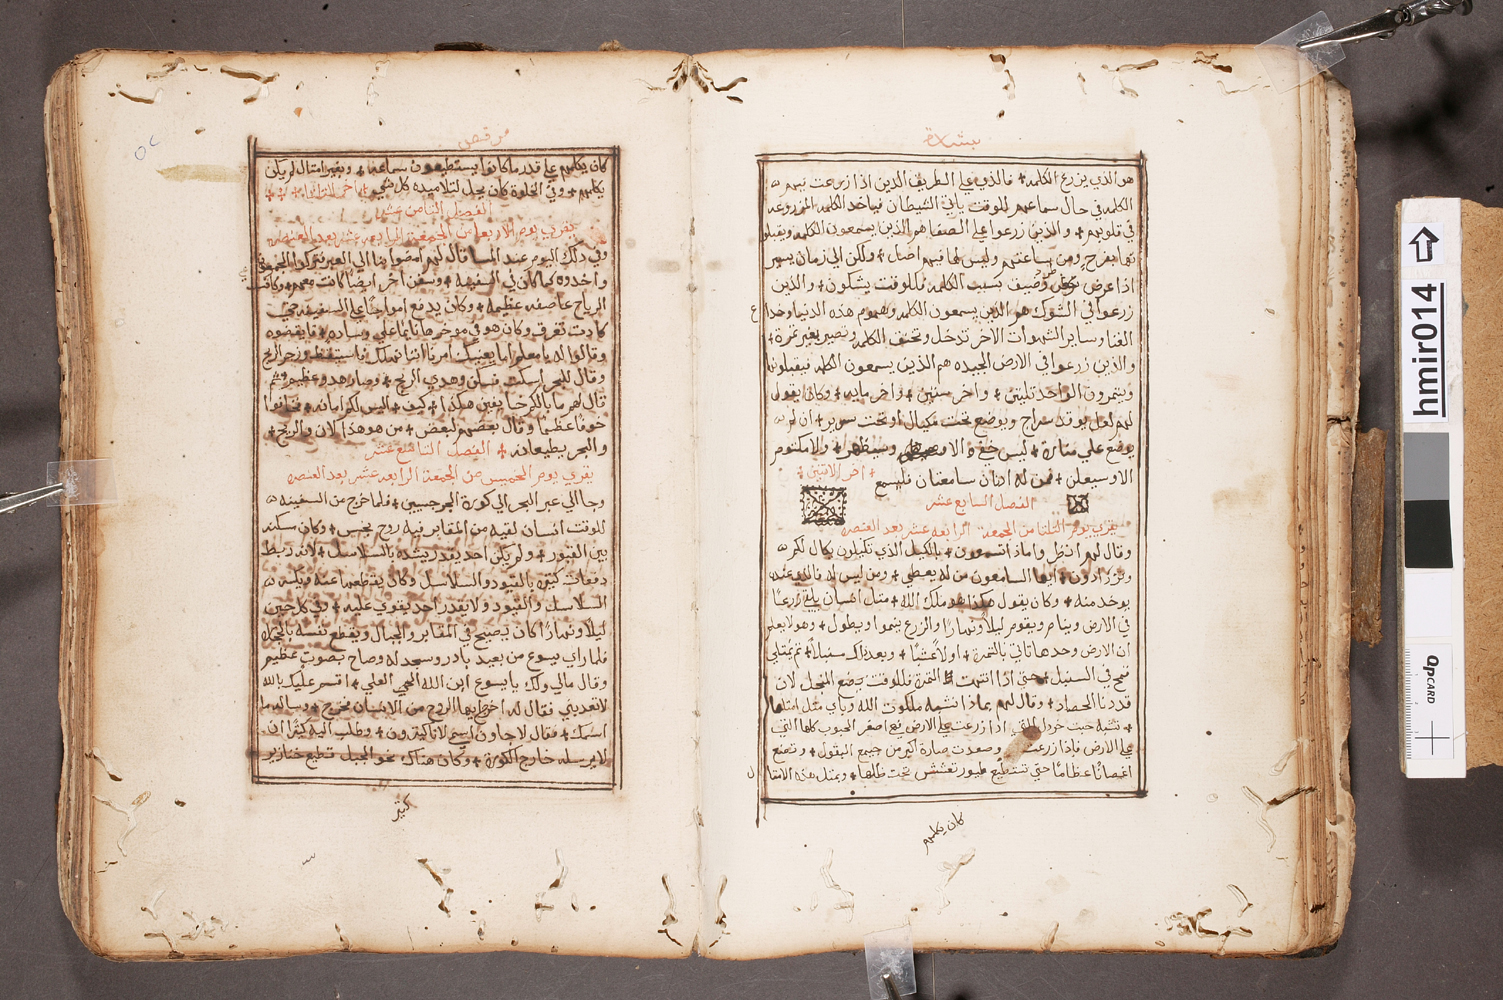 بشارة
هو الذي يزرع الكلمه + فالذي علي الطريق الذين اذا زرعت فيهم
الكلمه في حال سماعهم للوقت ياتي الشيطان فياخد الكلمه المزروعه
في قلوبهم + والذين زرعوا علي الصفا هم الذين يسمعون الكلمه ويقبلو
نها بفرح من ساعتهم وليس لها فيهم اصل + ولكن الي زمان يسير
اذا عرض وضيف بسبب الكلمه فللوقت يشكون + والذين
زرعوا في الشوك هم الذين يسمعون الكلمه وهموم هذه الدنيا وخدا
ع
الغنا وساير الشهوات الاخر تدخل وتخنق الكلمه وتصير بغير ثمرة +
والذين زرعوا في الارض الجيده هم الذين يسمعون الكلمه فيقبلونها
ويثمرون الواحد ثلثين + واخر ستين + واخر مايه + وكان يقول
لهم لعل يوقد سراج ويوضع تحت مكيال او تحت سرير + ان لم
يوضع علي منارة + ليس خفي الا وسيظهر + ولا مكتوم
الا وسيعلن + فمن له اذنان سامعتان فليسمع + اخر الاثنين +
الفصل السابع عشر
يقري يوم الثلثا من الجمعة الرابعه عشر بعد العنصره
وقال لهم انظروا ماذا تسمعون + بالكيل الذي تكيلون يكال لكم
وتزدادون + ايها السامعون من له يعطي + ومن ليس له فالذي عنده
يوخد منه + وكان يقول هكذا هو ملك الله + مثل انسان يلقي زرعًا
في الارض وينام ويقوم ليلًا ونهارًا والزرع ينموا ويطول + وهو لا يعلم
ان الارض وحدها تاتي بالثمرة + اولا عشبًا + وبعد ذلك سنبلًا + ثم يمتلي
قمح في السنبل + حتي اذا انتهت الثمرة فللوقت يضع المنجل لان
قد دنا الحصاد + وقال لهم بماذا نشبه ملكوت الله وباي مثل امثلها
+ تشبه حبت خردل التي اذا زرعت علي الارض فهي اصغر الحبوب كلها التي
علي الارض فاذا زرعت وصعدت صارة اكبر من جميع البقول + وتصنع
اغصانًا عظامًا حتي تستطيع طيور تعشش تحت ظلها + وبمثل هذه الامثا
ل
كان يكلمهم
مرقص
كان يكلمهم علي قدر ما كانوا يستطيعون سماعه + وبغير امثال لم يكن
يكلمهم + وفي الخلوة كان يحل لتلاميده كل شي + اخر الثلاثا +
الفصل الثامن عشر
يقري يوم الاربعا من الجمعة الرابعه عشر بعد العنصره
وفي ذلك اليوم عند المسا قال لهم امضوا بنا الي العبر فتركوا الجمع
واخدوه كما كان في السفينه + وسفن اخر ايضًا كانت معهم + وكانت
الرياح عاصفه عظيمة + وكان يدفع امواجًا علي السفينه حتي
كادت تغرق وكان هو في موخرها نايمًا علي وساده + فايقضوه
وقالوا له يا معلم اما يعنيك امرنا اننا نهلك فاستيقظ وزجر الريح
وقال للبحر اسكت فسكن وهدي الريح + وصار هدو عظيم +
قال لهم ما بالكم خايفين هكذا + كيف + اليس لكم امانه + فخافوا
خوفًا عظيمًا وقال بعضهم لبعض + من هو هذا لان الريح +
والبحر يطيعانه + الفصل التاسع عشر
يقري يوم الخميس من الجمعة الرابعه عشر بعد العنصره
وجا الي عبر البحر الي كورة الجرجسيين + فلما خرج من السفينه
للوقت انسان لقيه من المقابر فيه روح نجس + وكان سكنه
بين القبور + ولم يكن احد يقدر يشده بالسلاسل + لانه ربط
دفعات كثيره بالقيود والسلاسل وكان يقطعها عنه ويكسر
السلاسل والقيود ولا يقدر احد يقوي عليه + وفي كل حين
ليلًا ونهارًا كان يصيح في المقابر والجبال ويقطع نفسه بالحجارة
فلما راي يسوع من بعيد بادر وسجد له وصاح بصوت عظيم
وقال مالي ولك يا يسوع ابن الله الحي العلي + اقسم عليك بالله
لا تعدبني فقال له اخرج ايها الروح من الانسان فخرج + وساله ما
اسمك + فقال لاجاون اسمي لاننا كثيرون + وطلب اليه كثيرًا ان
لا يرسله خارج الكورة + وكان هناك نحو الجبل قطيع خنازير
كثير
hmir014
QPCARD